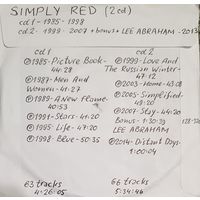 SIMPLY RED (2cd)
cd 1 - 1985 - 1998
cd 2 - 1999 - 2007 + bonus + LEE ABRAHAM - 2013
cd 1
℗1985 - Picture Book -
44:28
℗1987 - Men And
Women - 41:27
℗1989 - A New Flame -
40:53
℗1991 - Stars - 41:20
℗1995 - Life - 47:20
℗1998 - Blue - 50:35
63 tracks
4:26:05
cd 2
℗1999 - Love And
The Russian Winter -
47:12
℗2003 - Home - 43:08
℗2005 - Simplified -
49:20
℗2007 - Stay - 44:20
Bonus - 1:30:39
LEE ABRAHAM
℗2014 - Distant Days -
1:00:04
66 tracks
5:34:46